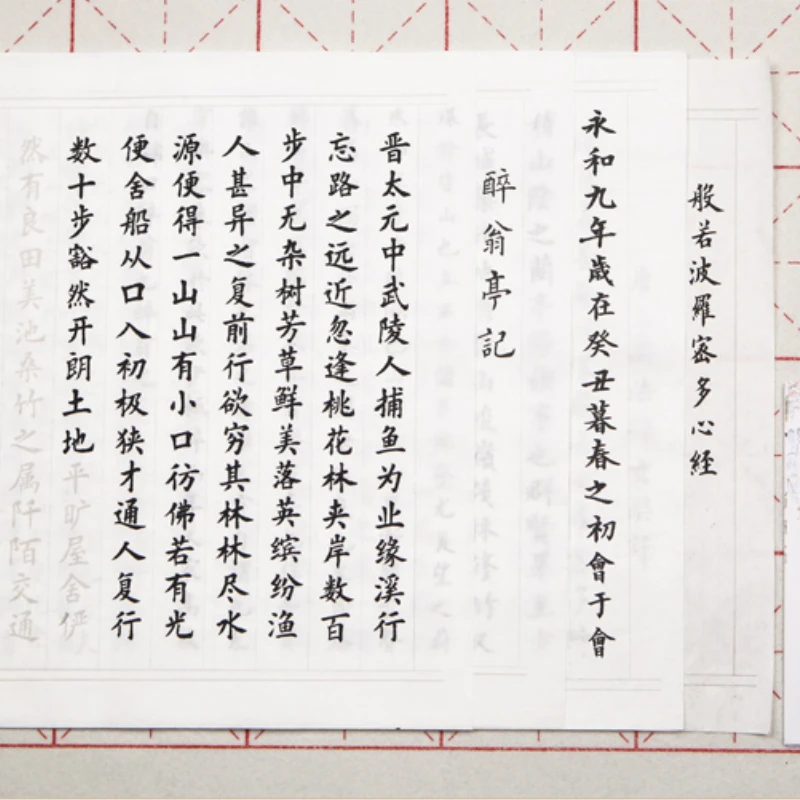 般若波羅密多心経
永和九年歲在癸丑暮春之初會于會
醉翁亭記
晋太元中武陵人捕鱼为业缘溪行
忘路之远近忽逢桃花林夹岸数百
步中无杂树芳草鲜美落英缤纷渔
人甚异之复前行欲穷其林林尽水
源便得一山山有小口彷佛若有光
便舍船从口入初极狭才通人复行
数十步豁然开朗土地
平旷屋舍俨
然有良田美池桑竹之属阡陌交通